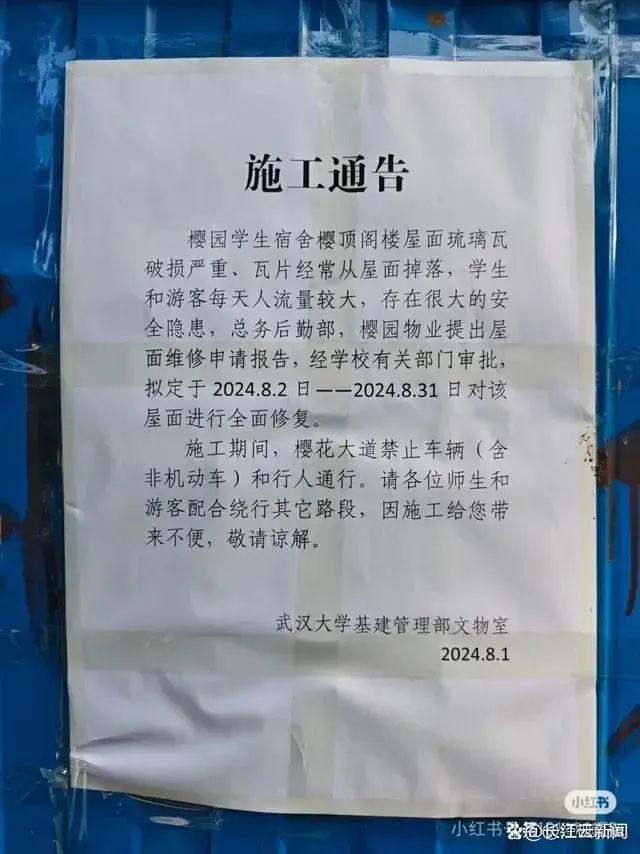 施工通告
樱园学生宿舍樱顶阁楼屋面琉璃瓦
破损严重、瓦片经常从屋面掉落，学生
和游客每天人流量较大，存在很大的安
全隐患，总务后勤部，樱园物业提出屋
面维修申请报告，经学校有关部门审批，
拟定于 2024.8.2 日——2024.8.31 日对该
屋面进行全面修复。
施工期间，樱花大道禁止车辆（含
非机动车）和行人通行。请各位师生和
游客配合绕行其它路段，因施工给您带
来不便，敬请谅解。
武汉大学基建管理部文物室
2024.8.1
小红书
小红书
@长江云新闻